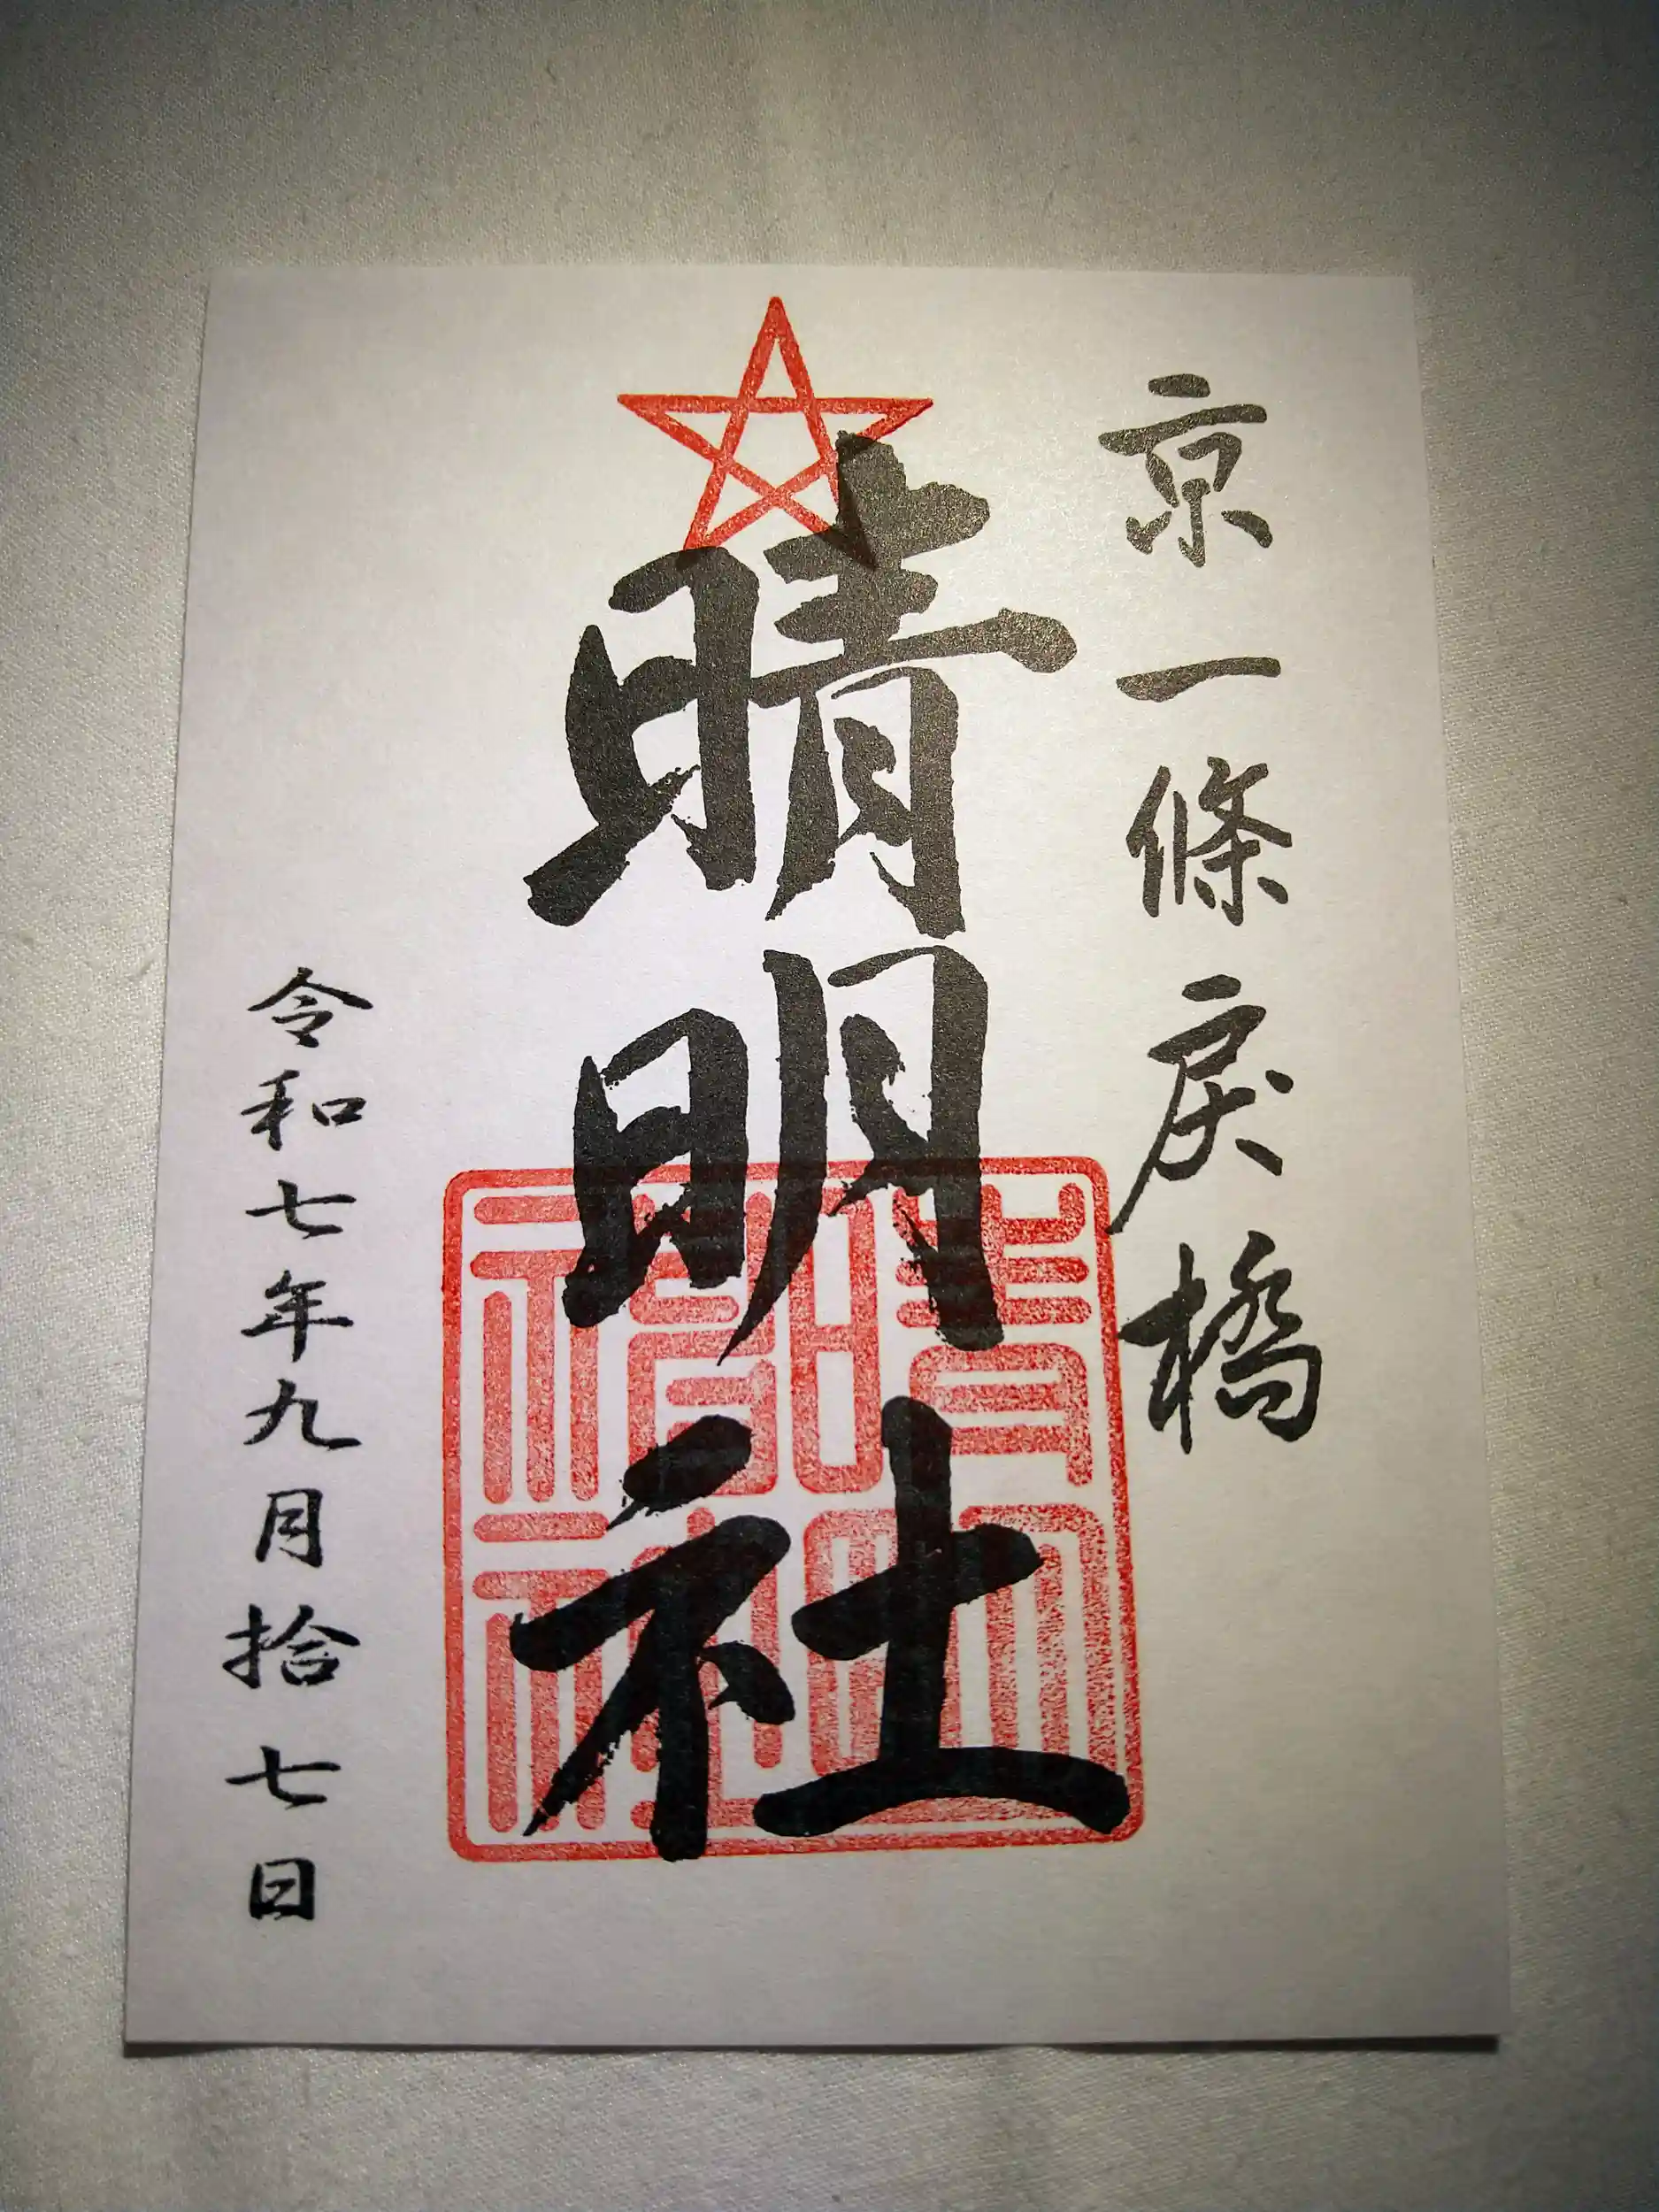 京一條戻橋
晴明社
晴明禰社
令和七年九月拾七日